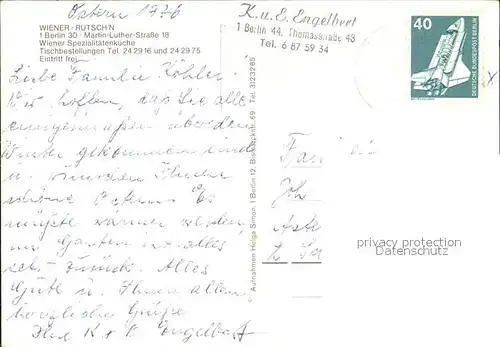 Ostern 1976
WIENER-RUTSCH'N
1 Berlin 30 · Martin-Luther-Straße 18
Wiener Spezialitätenküche
Tischbestellungen Tel. 24 29 16 und 24 29 75
Eintritt frei
K. u. E. Engelbert
1 Berlin 44, Thomasstraße 48
Tel. 6 87 59 34
40
DEUTSCHE BUNDESPOST BERLIN
Liebe Familie Köhler.
Wir hoffen, das Sie alle
einigermaßen über den
Winter gekommen sind
u. wünschen Ihnen
schöne Ostern. Es
müßte wärmer werden,
im Garten ist alles
sehr zurück. Alles
Gute u. Ihnen allen
herzliche Grüße
K + E Engelbert
Aufnahmen Helga Simon, 1 Berlin 12, 69 Tel. 3123285
Fam
privacy protection
Datenschutz